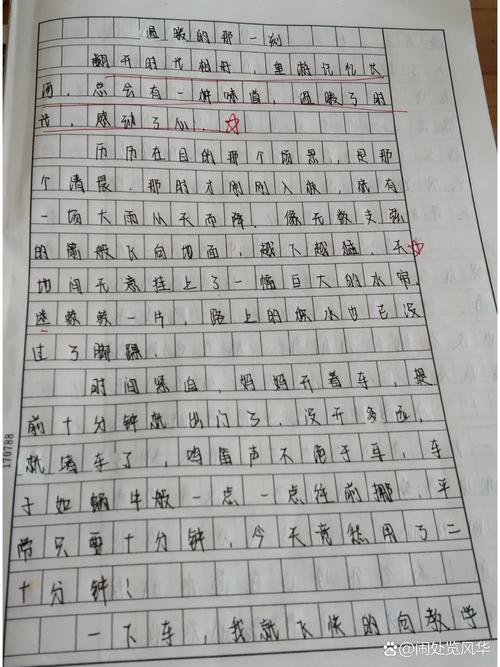 温暖的那一刻
翻开时光相册，重游记忆长
河，总会有一种味道，温暖了时
光，感动了心。
历历在目的那个场景，是那
个清晨。那时才刚刚入秋，就有
一场大雨从天而降，像无数支
的箭般飞向地面，越下越猛，天
地间无意挂上了一幅巨大的水帘，
迷蒙蒙一片，路上的积水也已没
过了脚踝。
时间紧迫，妈妈开着车，提
前十分钟就出门了，没开多远，
就堵车了，鸣笛声不绝于耳，车
子如蜗牛般一点一点往前挪，平
常只要十分钟，今天竟然用了二
十分钟！
一下车，我就飞快的向教学
170788
@闹处览风华